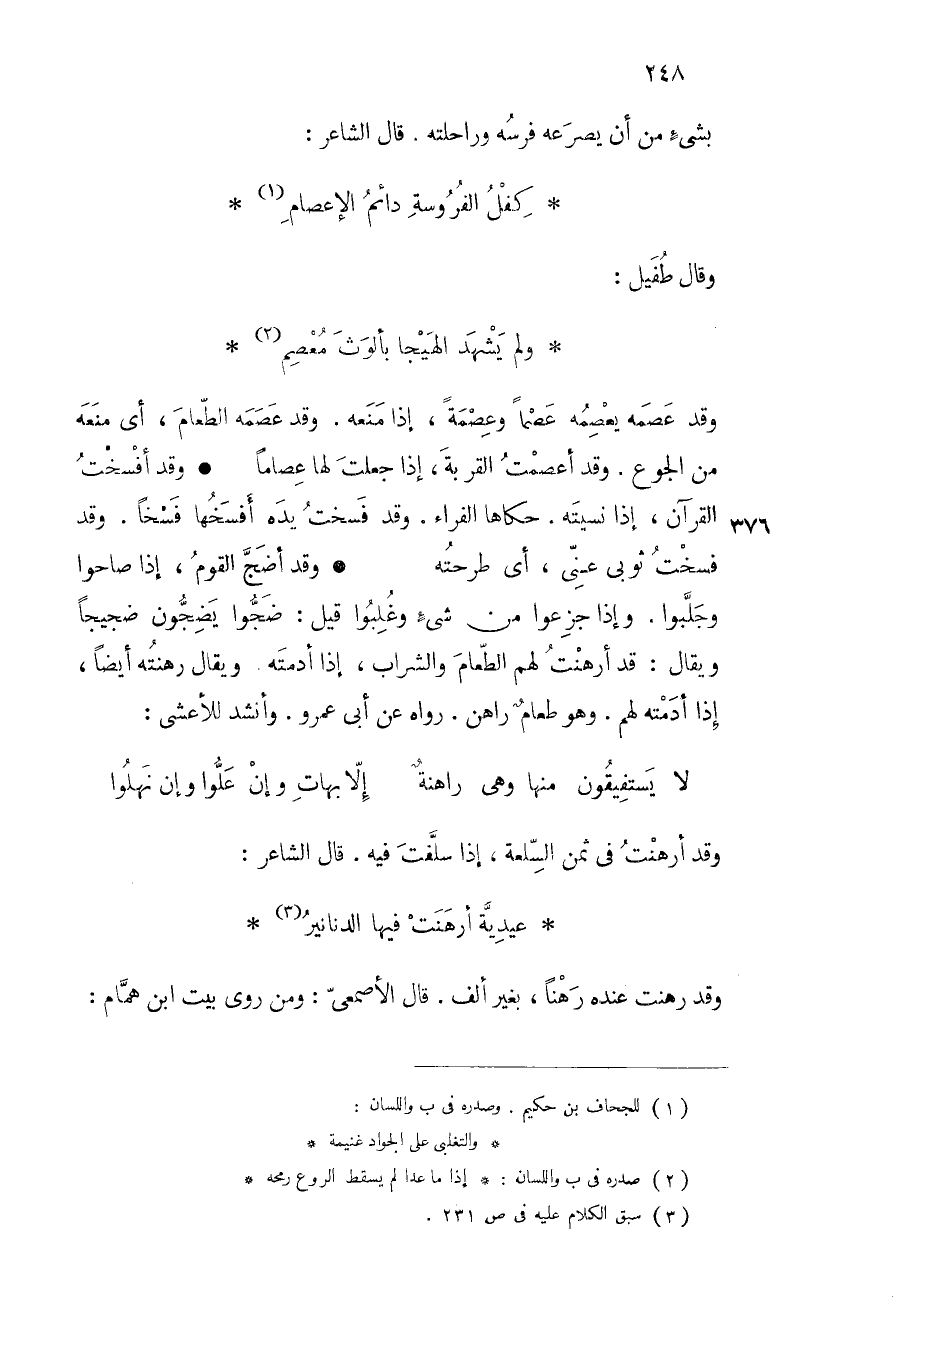 ٢٤٨
بشىءٍ من أن يصرَعه فرسُه وراحلته . قال الشاعر :
* كِفْلُ الفُرُوسةِ دائمُ الإعصامِ(١) *
وقال طُفَيل :
* ولم يَشْهَد الهَيْجا بألوَثَ مُعْصِمِ(٢) *
وقد عَصَمه يعْصِمُه عَصْماً وعِصْمَةً ، إذا مَنَعه . وقد عَصَمَه الطّعامَ ، أى منَعَه
من الجوع . وقد أعصمْتُ القربةَ ، إذا جعلتَ لها عِصاماً ● وقد أفْسخْتُ
القرآن ، إذا نسيتَه . حكاها الفراء . وقد فَسختُ يدَه أَفسَخُها فَسْخاً . وقد ٣٧٦
فسخْتُ ثوبى عنِّى ، أى طرحتُه ● وقد أضَجَّ القومُ ، إذا صاحوا
وجَلَّبوا . وإذا جزِعوا من شىءٍ وغُلِبُوا قيل : ضَجُّوا يَضِجُّون ضجيجاً
ويقال : قد أرهنْتُ لهم الطّعامَ والشراب ، إذا أدمتَه . ويقال رهنتُه أيضاً ،
إذا أدَمْته لهم . وهو طعامٌ راهن . رواه عن أبى عمرو . وأنشد للأعشى :
لا يَستفِيقُون منها وهى راهنةٌ إلّا بهاتِ وإنْ عَلُّوا وإن نَهِلُوا
وقد أرهنْتُ فى ثمن السِّلعة ، إذا سلَّفتَ فيه . قال الشاعر :
* عيدِيَّة أرهَنَتْ فيها الدنانيرُ(٣) *
وقد رهنت عنده رَهْناً ، بغير ألف . قال الأصمعىّ : ومن روى بيت ابن همَّام :
(١) للجحاف بن حكيم . وصدره فى ب واللسان :
* والتغلبى على الجواد غنيمة *
(٢) صدره فى ب واللسان : * إذا ما عدا لم يسقط الروع رمحه *
(٣) سبق الكلام عليه فى ص ٢٣١ .